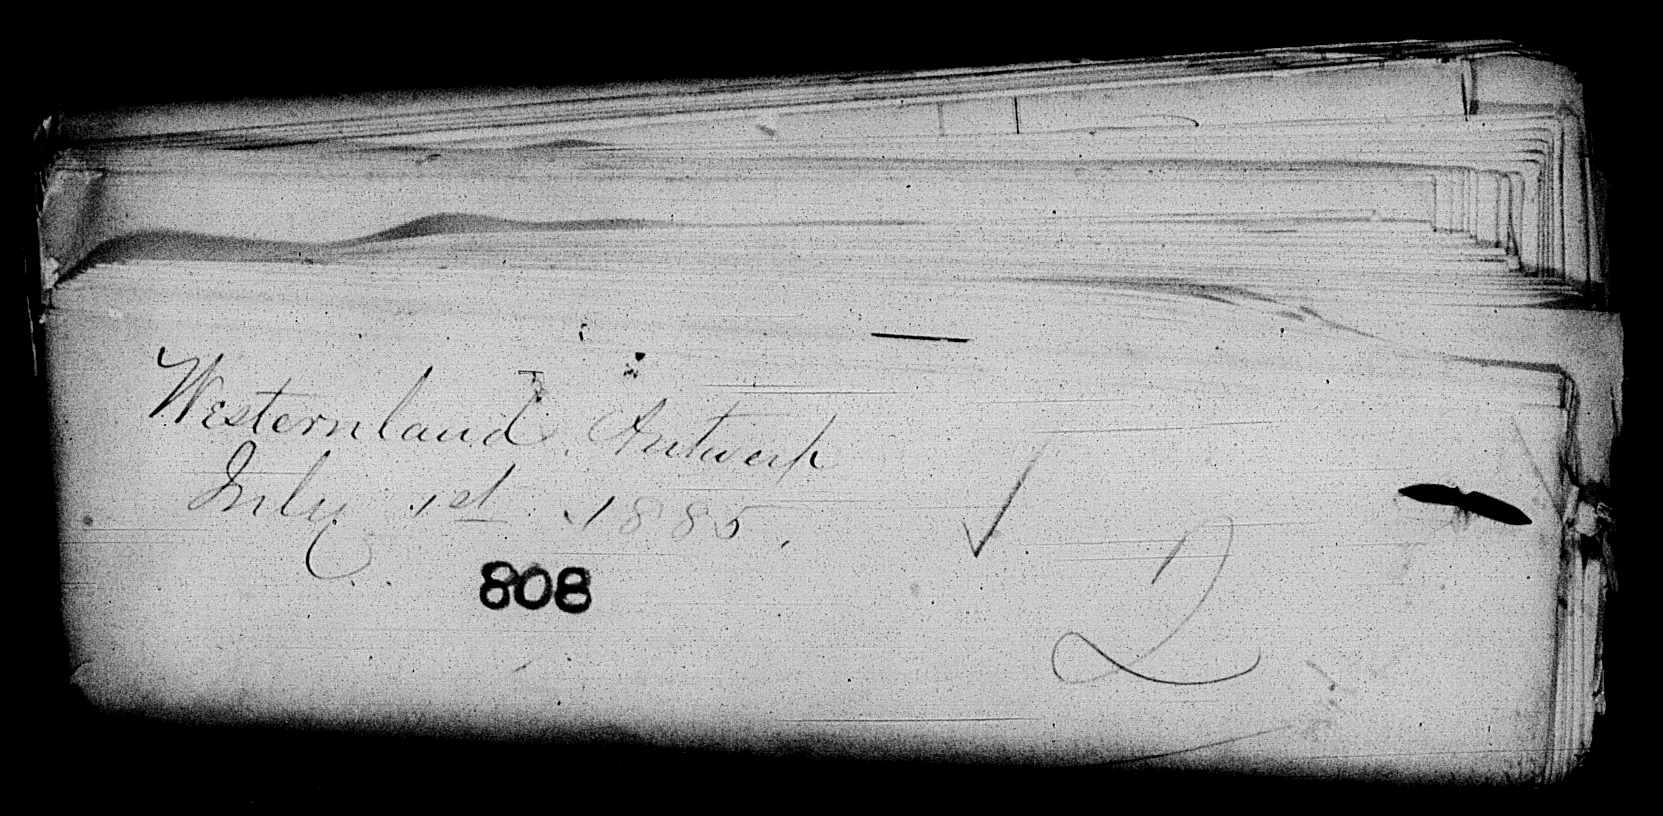 Westernland. Antwerp
July 1st 1885.
808
✓
2